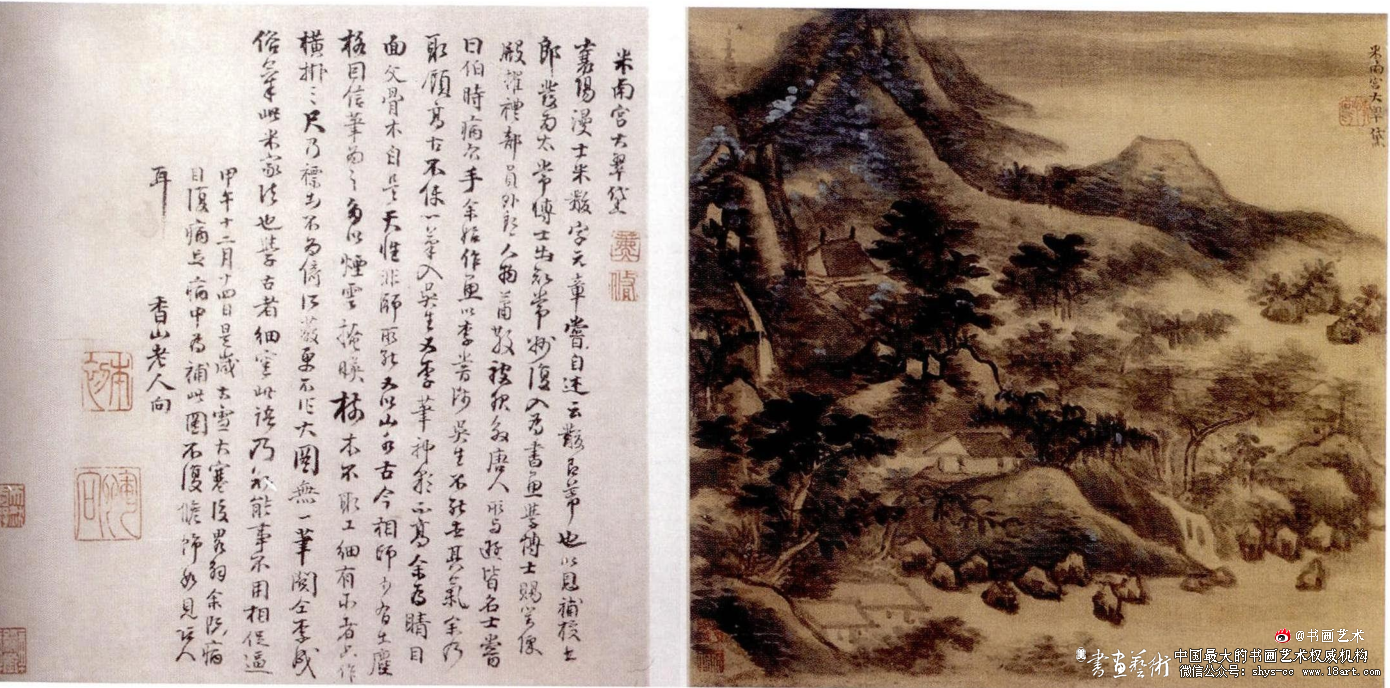 米南宮大翠黛
襄陽漫士米黻字元章嘗自述云黻即芾也以恩補校書
郎發為太常博士出知常州復入為書畫學博士賜對便
殿擢禮部員外郎人物蕭散被服效唐人所與游皆名士嘗
曰伯時病右手余始作畫以李常師吳生不能去其氣余乃
取顧高古不使一筆入吳生又李筆神彩不高余為睛目
面文骨木自是天性非師所能又以山水古今相師少有出塵
格因信筆為之多以煙雲掩映樹木不取工細有求者只作
橫掛三尺乃標出不為倚所蔽更不作大圖無一筆關仝李成
俗氣此米家法也學古者細此語乃知能事不用相促逼
甲午十二月十四日是歲大雪大寒後余病
目復病足病中為補此圖不復修飾如見人
耳
香山老人向
米南宮大翠黛
@书画艺术
書畫藝術
中国最大的书画艺术权威机构
微信公众号：shys-cc www.18art.com